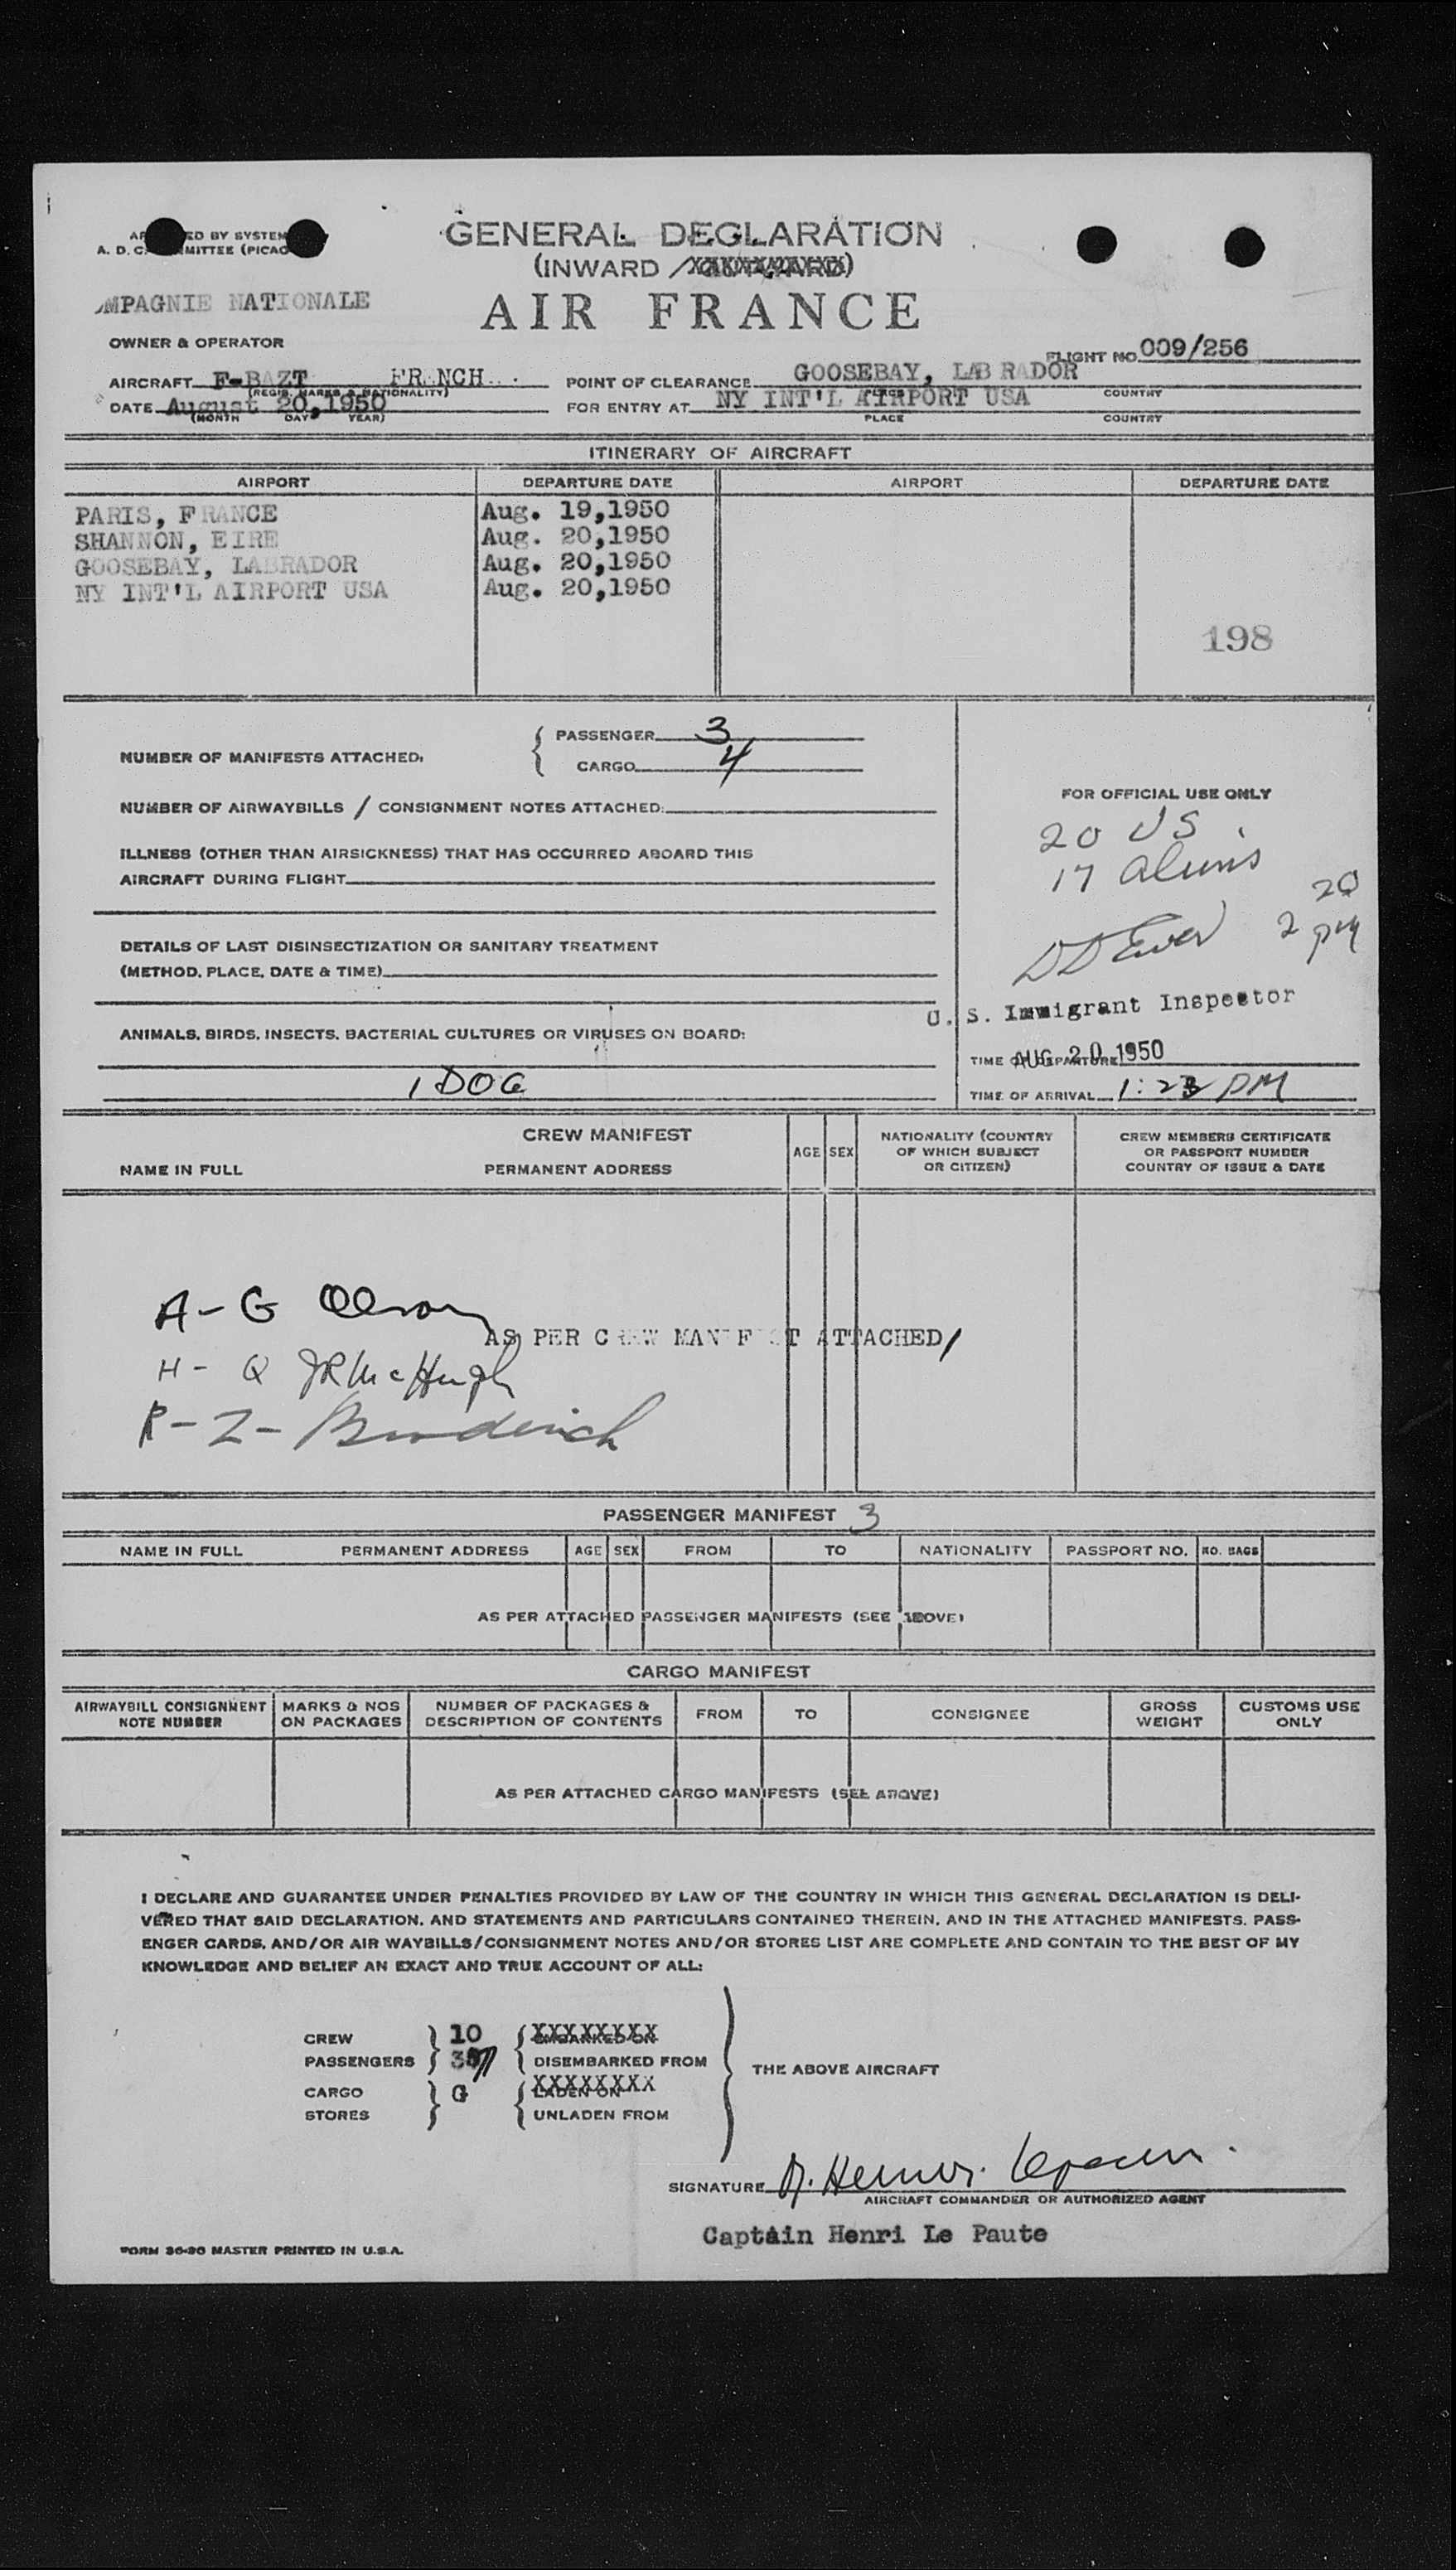 GENERAL DECLARATION
(INWARD /
MPAGNIE NATIONALE
AIR FRANCE
OWNER & OPERATOR
FLIGHT NO. 009/256
AIRCRAFT F-BAZT FRENCH
(REGIS. MARKS & NATIONALITY)
POINT OF CLEARANCE GOOSEBAY, LABRADOR
PLACE COUNTRY
DATE August 20,1950
(MONTH DAY YEAR)
FOR ENTRY AT NY INT'L AIRPORT USA
PLACE COUNTRY
ITINERARY OF AIRCRAFT
AIRPORT DEPARTURE DATE AIRPORT DEPARTURE DATE
PARIS, FRANCE Aug. 19,1950
SHANNON, EIRE Aug. 20,1950
GOOSEBAY, LABRADOR Aug. 20,1950
NY INT'L AIRPORT USA Aug. 20,1950
198
NUMBER OF MANIFESTS ATTACHED.
PASSENGER 3
CARGO 4
NUMBER OF AIRWAYBILLS / CONSIGNMENT NOTES ATTACHED:
ILLNESS (OTHER THAN AIRSICKNESS) THAT HAS OCCURRED ABOARD THIS
AIRCRAFT DURING FLIGHT
DETAILS OF LAST DISINSECTIZATION OR SANITARY TREATMENT
(METHOD, PLACE, DATE & TIME)
ANIMALS, BIRDS, INSECTS, BACTERIAL CULTURES OR VIRUSES ON BOARD:
1 DOG
FOR OFFICIAL USE ONLY
20 US
17 aliens
20
2 pm
U. S. Immigrant Inspector
TIME OF DEPARTURE AUG 20 1950
TIME OF ARRIVAL 1:23 PM
CREW MANIFEST
NAME IN FULL PERMANENT ADDRESS
AGE SEX
NATIONALITY (COUNTRY
OF WHICH SUBJECT
OR CITIZEN)
CREW MEMBERS CERTIFICATE
OR PASSPORT NUMBER
COUNTRY OF ISSUE & DATE
A - G Olson
AS PER CREW MANIFEST ATTACHED/
H - Q JR McHugh
R - Z - Broderick
PASSENGER MANIFEST 3
NAME IN FULL PERMANENT ADDRESS AGE SEX FROM TO NATIONALITY PASSPORT NO. NO. BAGS
AS PER ATTACHED PASSENGER MANIFESTS (SEE ABOVE)
CARGO MANIFEST
AIRWAYBILL CONSIGNMENT
NOTE NUMBER
MARKS & NOS
ON PACKAGES
NUMBER OF PACKAGES &
DESCRIPTION OF CONTENTS
FROM TO CONSIGNEE
GROSS
WEIGHT
CUSTOMS USE
ONLY
AS PER ATTACHED CARGO MANIFESTS (SEE ABOVE)
I DECLARE AND GUARANTEE UNDER PENALTIES PROVIDED BY LAW OF THE COUNTRY IN WHICH THIS GENERAL DECLARATION IS DELI-
VERED THAT SAID DECLARATION, AND STATEMENTS AND PARTICULARS CONTAINED THEREIN, AND IN THE ATTACHED MANIFESTS, PASS-
ENGER CARDS, AND/OR AIR WAYBILLS/CONSIGNMENT NOTES AND/OR STORES LIST ARE COMPLETE AND CONTAIN TO THE BEST OF MY
KNOWLEDGE AND BELIEF AN EXACT AND TRUE ACCOUNT OF ALL:
CREW 10 EMBARKED ON
PASSENGERS 37 DISEMBARKED FROM
THE ABOVE ABOVE AIRCRAFT
CARGO G LADEN ON
STORES UNLADEN FROM
SIGNATURE
AIRCRAFT COMMANDER OR AUTHORIZED AGENT
Captain Henri Le Paute
FORM 36-20 MASTER PRINTED IN U.S.A.